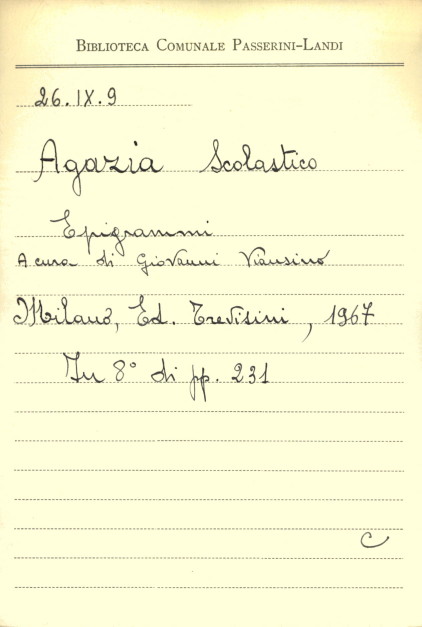 BIBLIOTECA COMUNALE PASSERINI-LANDI
26.IX.9
Agazia Scolastico
Epigrammi
A cura di Giovanni Viansino
Milano, Ed. Trevisini, 1967
In 8° di pp. 231
C